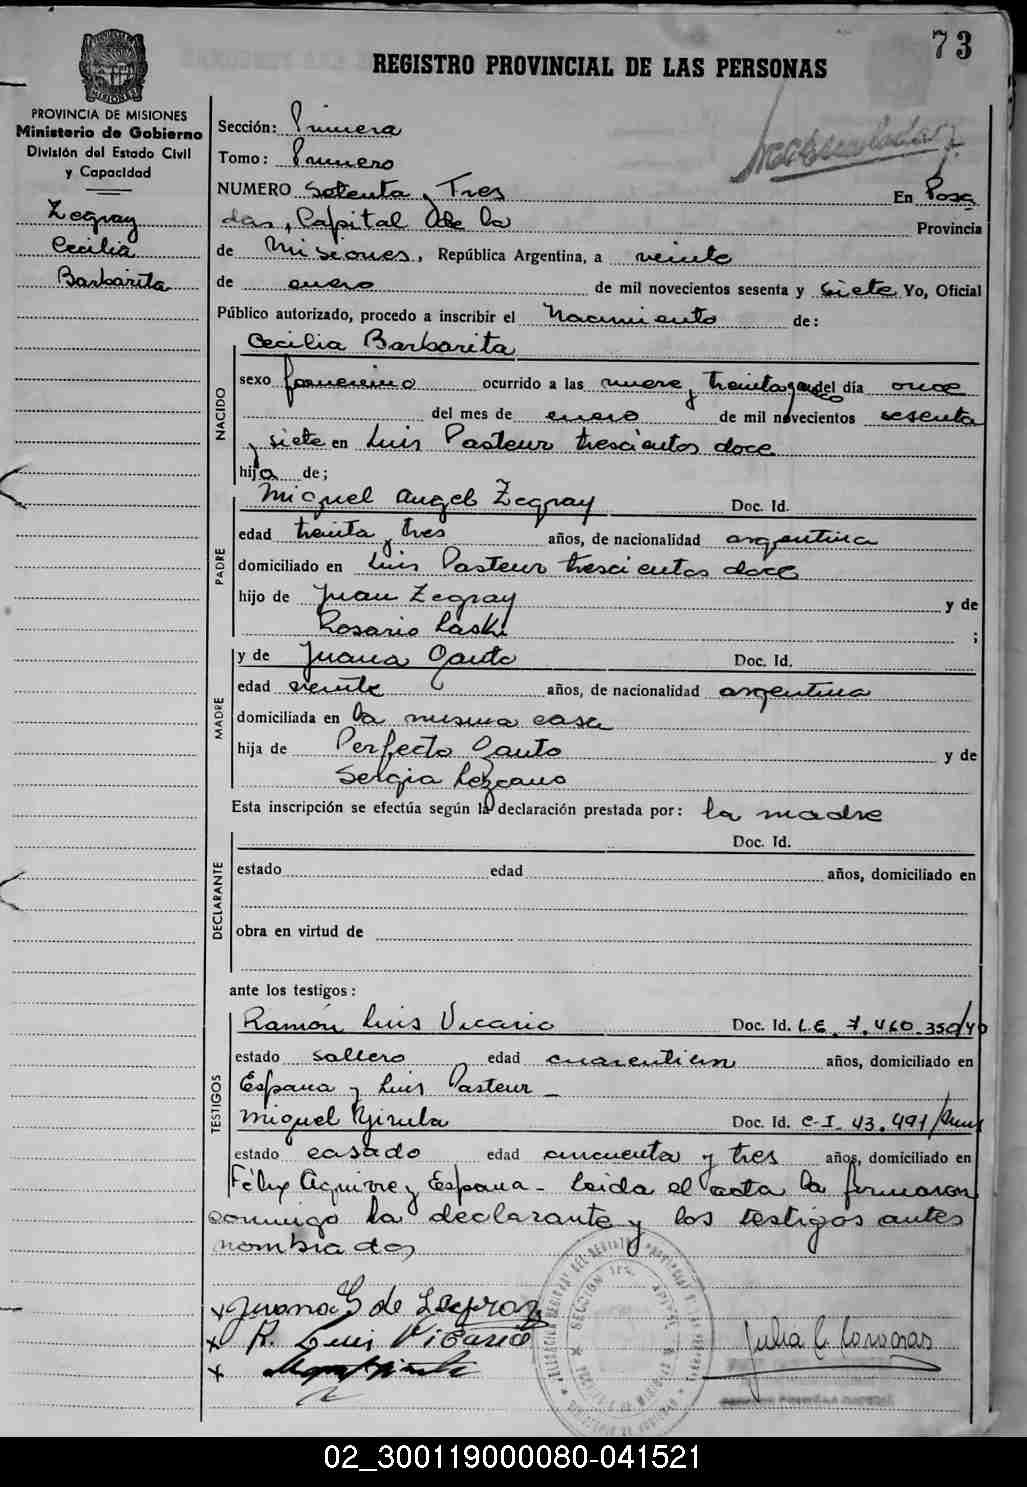 73
REGISTRO PROVINCIAL DE LAS PERSONAS
PROVINCIA DE MISIONES
Ministerio de Gobierno
División del Estado Civil
y Capacidad
Zegray
Cecilia
Barbarita
Sección: Primera
Tomo: Primero
NUMERO Setenta y Tres En Posa
das, Capital de la Provincia
de Misiones, República Argentina, a veinte
de enero de mil novecientos sesenta y siete Yo, Oficial
Público autorizado, procedo a inscribir el Nacimiento de:
Cecilia Barbarita
NACIDO
sexo femenino ocurrido a las nueve y treinta del día once
del mes de enero de mil novecientos sesenta
y siete en Luis Pasteur trescientos doce
hija de;
Miguel Angel Zegray Doc. Id.
PADRE
edad treinta y tres años, de nacionalidad argentina
domiciliado en Luis Pasteur trescientos doce
hijo de Juan Zegray y de
Rosario Laski ;
y de Juana Gauto Doc. Id.
MADRE
edad veinte años, de nacionalidad argentina
domiciliada en la misma casa
hija de Perfecto Gauto y de
Sergia Lezcano
Esta inscripción se efectúa según la declaración prestada por: la madre
Doc. Id.
DECLARANTE
estado edad años, domiciliado en
obra en virtud de
ante los testigos:
Ramón Luis Vicario Doc. Id. L.E. 7.460.350/46
TESTIGOS
estado soltero edad años, domiciliado en
España y Luis Pasteur
Miguel Doc. Id. C.I. 43.491/
estado casado edad cincuenta y tres años, domiciliado en
Félix Aguirre y España - Leida el acta la firmaron
conmigo la declarante y los testigos antes
nombrados
x Juana G de Zegray
x R. Luis Vicario
x
Julia C.
02_300119000080-041521